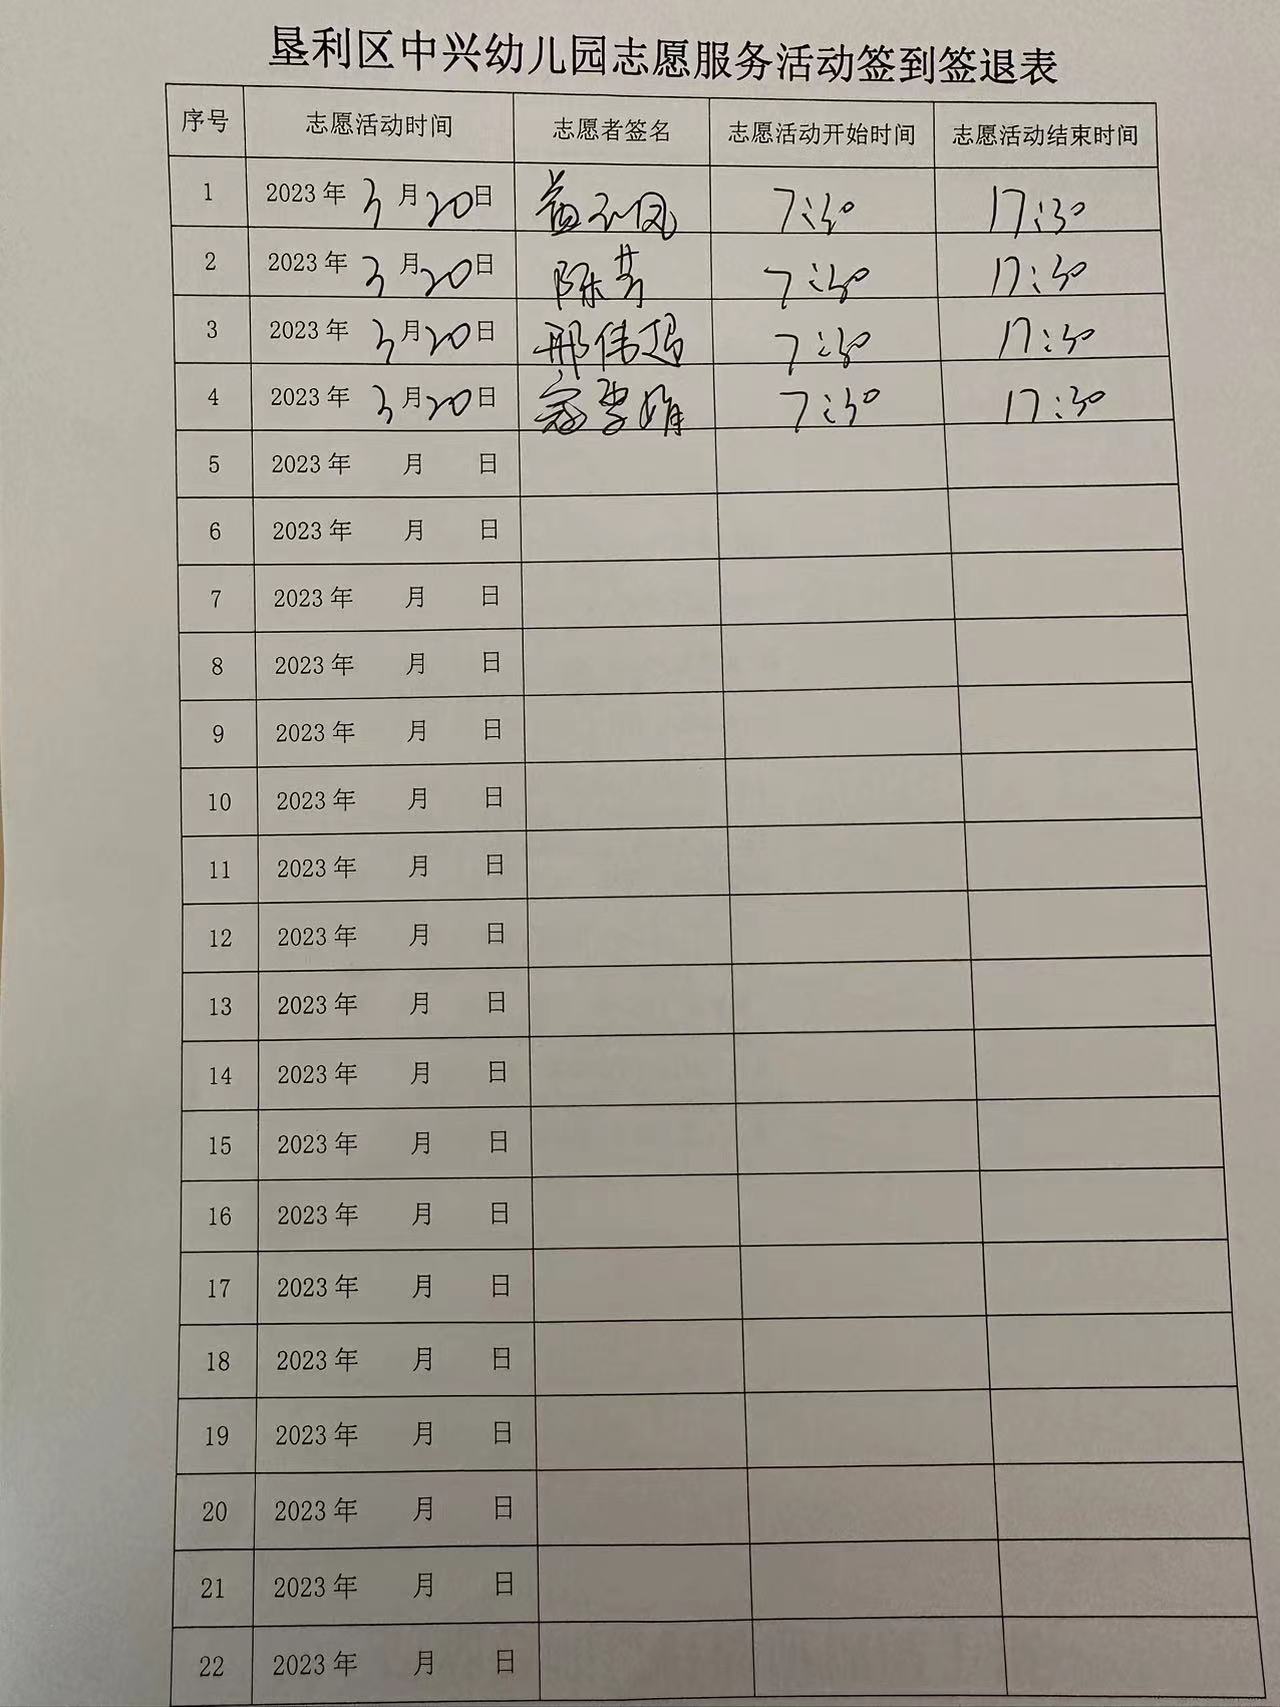 垦利区中兴幼儿园志愿服务活动签到签退表
序号 志愿活动时间 志愿者签名 志愿活动开始时间 志愿活动结束时间
1 2023年 3月20日 7:30 17:30
2 2023年 3月20日 陈芳 7:30 17:30
3 2023年 3月20日 邢伟娟 7:30 17:30
4 2023年 3月20日 7:30 17:30
5 2023年 月 日
6 2023年 月 日
7 2023年 月 日
8 2023年 月 日
9 2023年 月 日
10 2023年 月 日
11 2023年 月 日
12 2023年 月 日
13 2023年 月 日
14 2023年 月 日
15 2023年 月 日
16 2023年 月 日
17 2023年 月 日
18 2023年 月 日
19 2023年 月 日
20 2023年 月 日
21 2023年 月 日
22 2023年 月 日